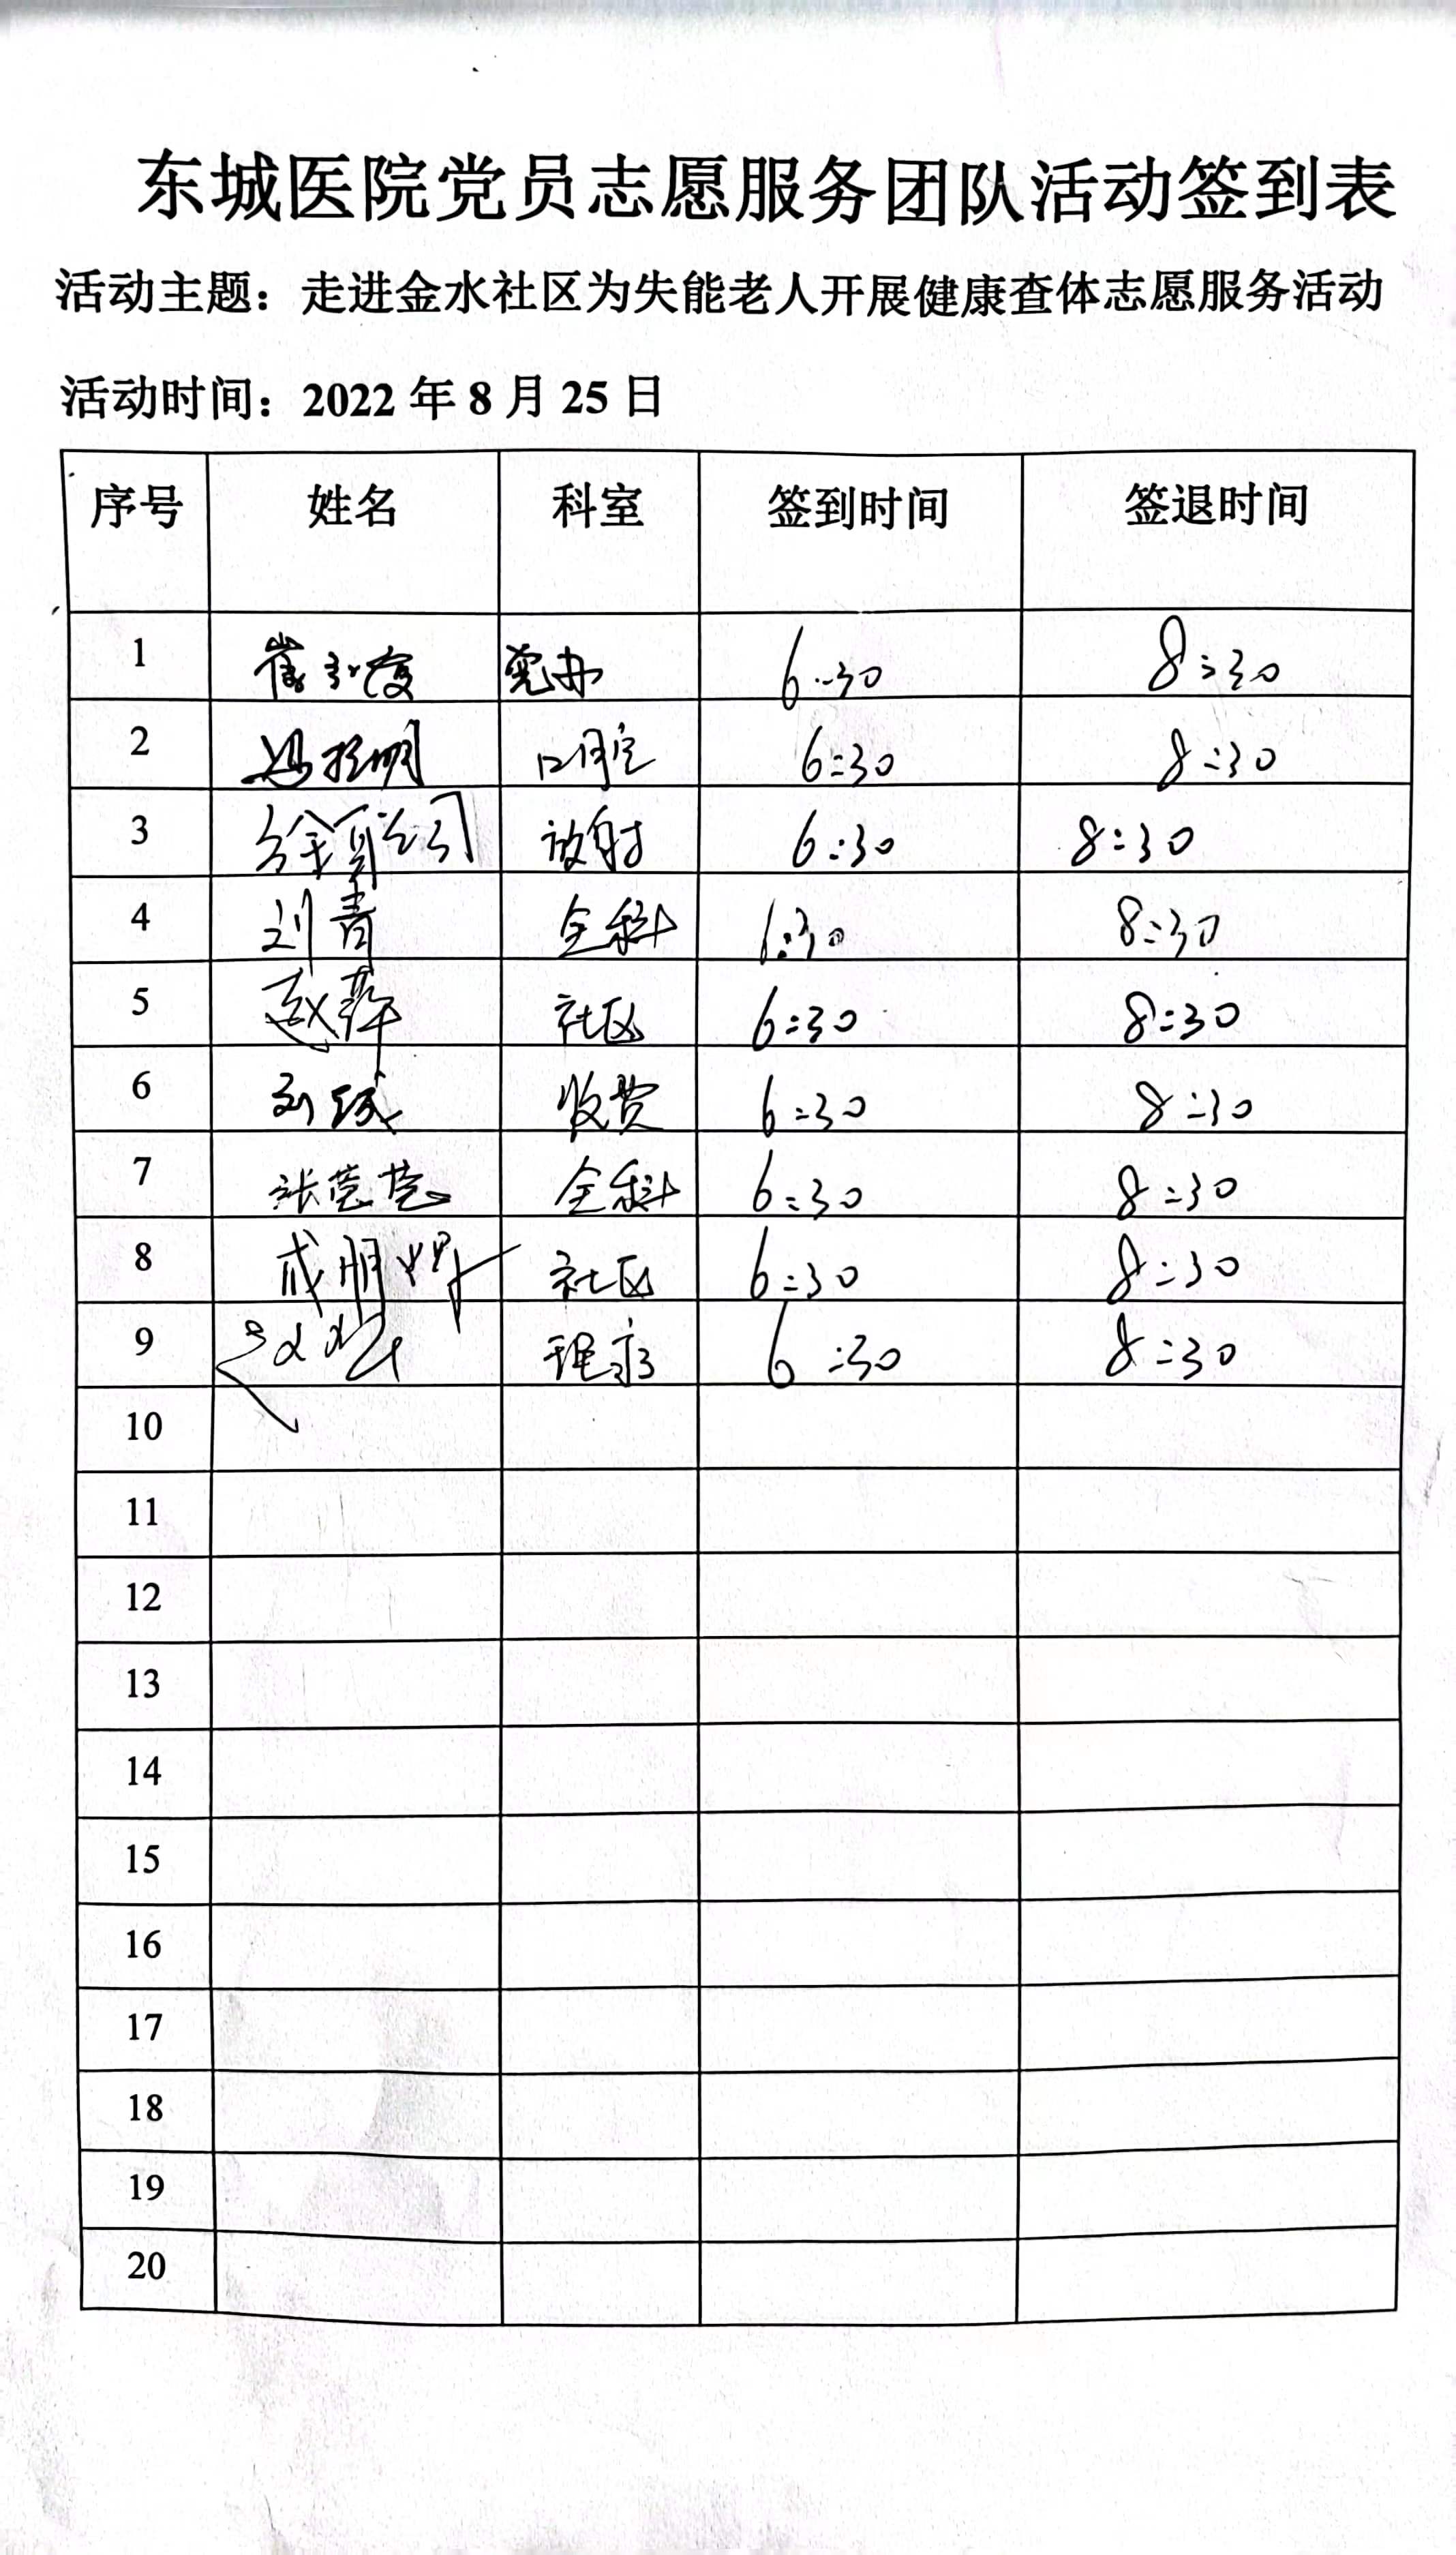 东城医院党员志愿服务团队活动签到表
活动主题：走进金水社区为失能老人开展健康查体志愿服务活动
活动时间：2022 年 8 月 25 日
序号 姓名 科室 签到时间 签退时间
1 崔 党办 6:30 8:30
2 明 口腔 6:30 8:30
3 徐 放射 6:30 8:30
4 刘青 全科 6:30 8:30
5 赵萍 社区 6:30 8:30
6 刘 收费 6:30 8:30
7 张莞莞 全科 6:30 8:30
8 成明 社区 6:30 8:30
9 理疗 6:30 8:30
10
11
12
13
14
15
16
17
18
19
20